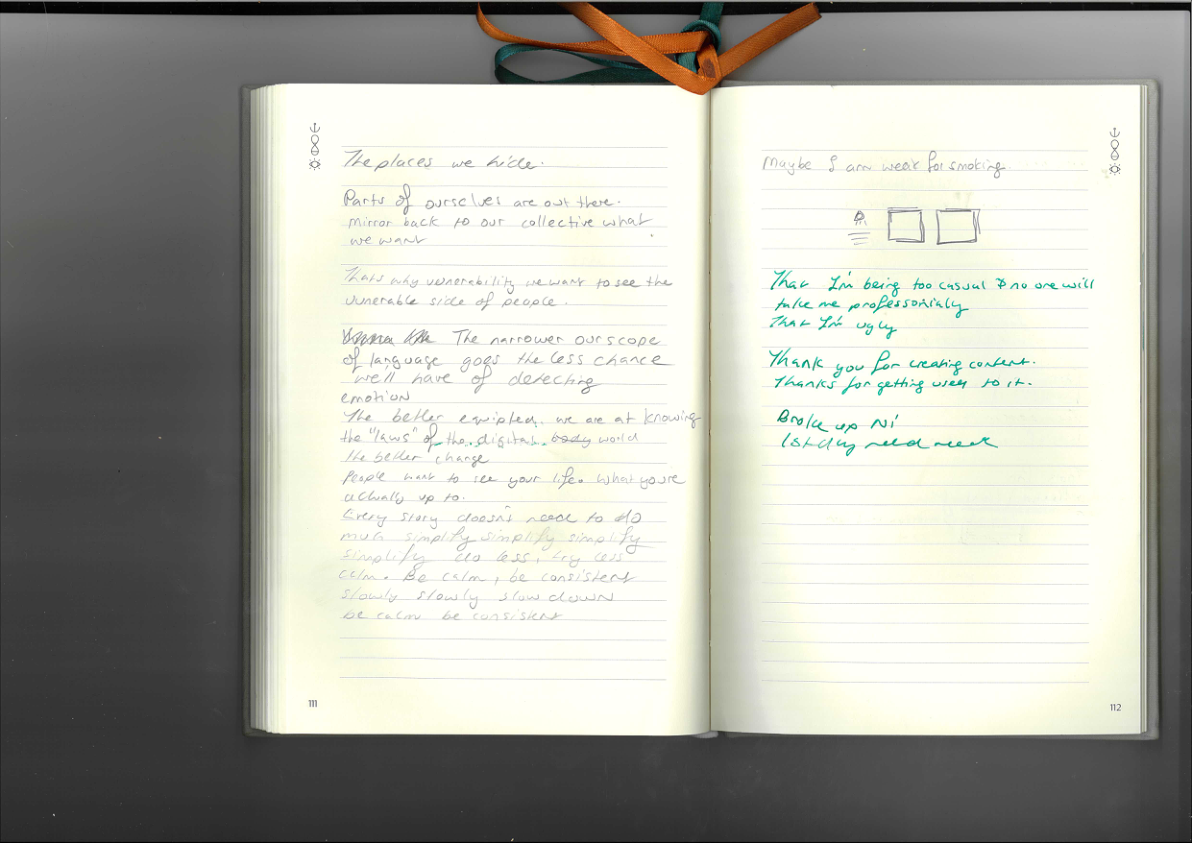 The places we hide.
Parts of ourselves are out there.
mirror back to our collective what
we want
Thats why vunerability we want to see the
vunerable side of people.
The narrower our scope
of language goes the less chance
we'll have of detecting
emotion
The better equipted we are at knowing
the "laws" of the digital body world
the better change
People want to see your life. What you're
actually up to.
Every story doesn't need to do
much simplify simplify simplify
simplify do less, try less
calm. Be calm, be consistent
slowly slowly slow down
be calm be consistent
111
Maybe I am weak for smoking.
That I'm being too casual & no one will
take me professonialy
That I'm ugly
Thank you for creating content.
Thanks for getting used to it.
Broke up
1st day
112